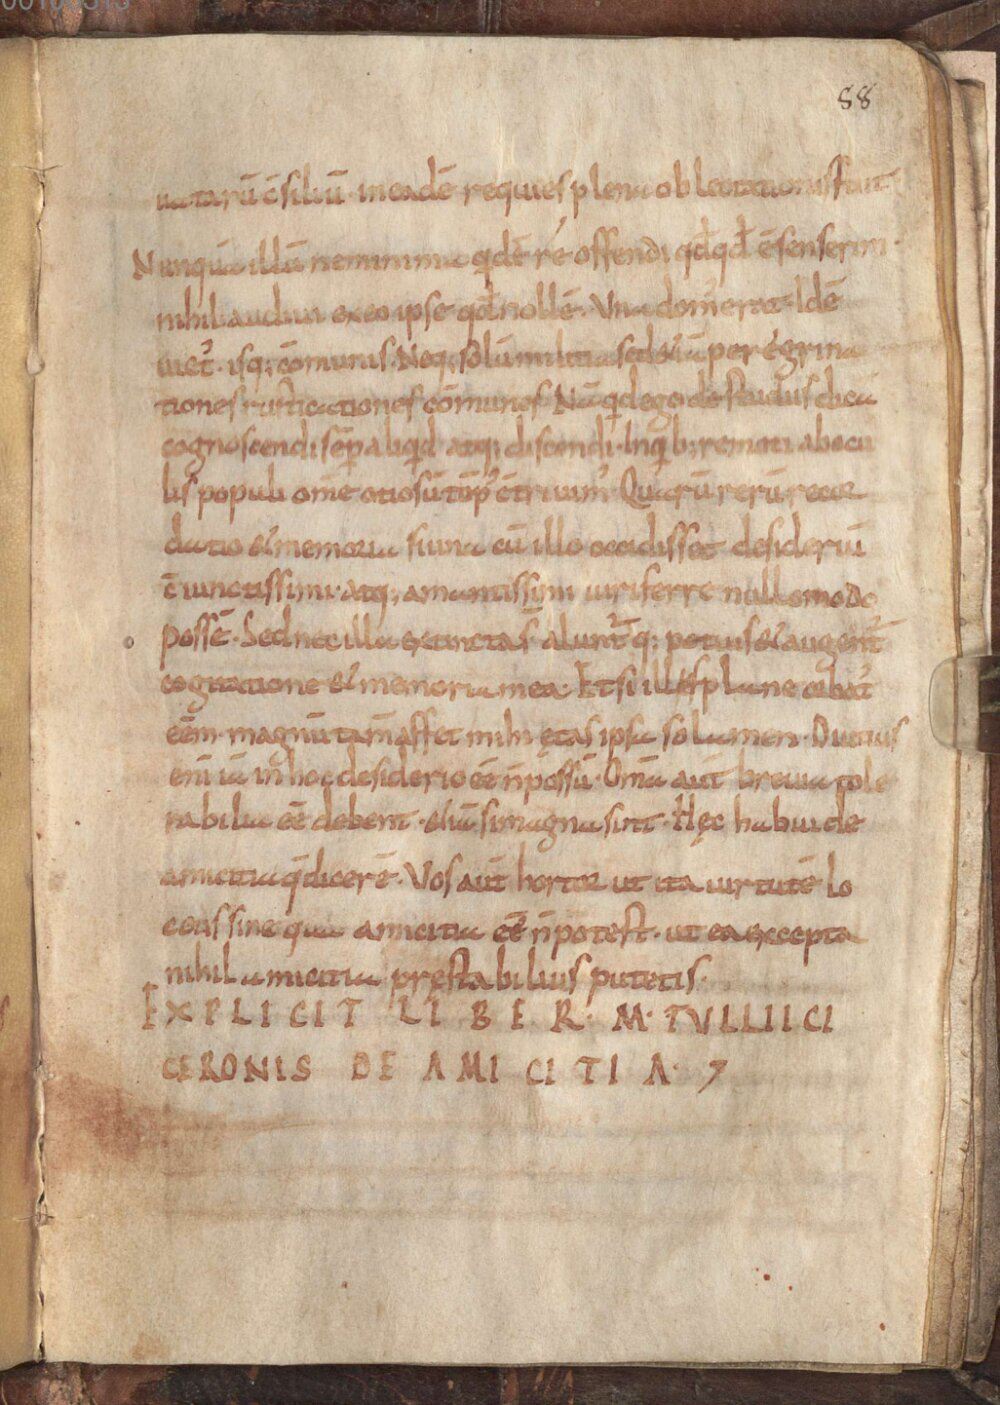 88
uatarū c̄siliū · in eadē requies plena oblectationis fuit
Nunquā illū ne minima qidē rē offendi qđqđ ē senserim ·
nihil audiui ex eo ipse qđ nollē · Una dom' erat · Idē
uict' · isq; cōmunis · Neq; solū militia sed &iā peregrina
tiones rusticationes cōmunes · Nā qid ego de studiis dicā
cognoscendi sēp aliqid atq; discendi · In qib; remoti ab ocu
lis populi om̄e otiosū tēp' c̄triuim' · Quarū rerū recor
datio & memoria si una cū illo occidisset desideriū
c̄iunctissimi atq; amantissimi uiri ferre nullo modo
possē · Sed nec illa extincta s̄ alunt̄q; potius & augent̄
cogitatione & memoria mea · Et si illis plane orbat'
eēm · magnū tam̄ affert mihi ętas ipsa solamen · Diutius
eni iā in hoc desiderio eē n̄ possū · Om̄ia aut̄ breuia tole
rabilia eē debent · &iā si magna sint · Hęc habui de
amicitia q̄ dicerē · Vos aut̄ hortor ut ita uirtutē lo
cetis sine qua amicitia eē n̄ potest · ut ea excepta
nihil amicitia pręstabilius putetis ·
EXPLICIT LIBER · M · TULLII CI
CERONIS DE AMICITIA · 7